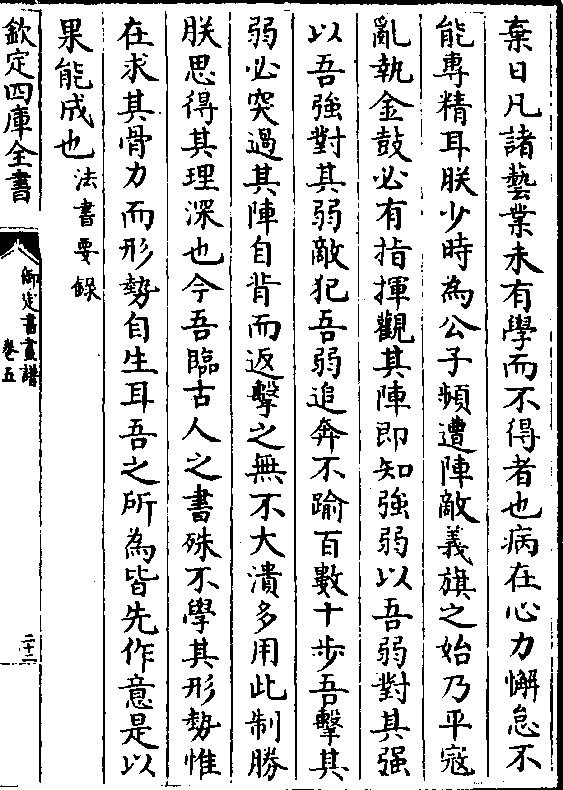 棄日凡諸藝業未有學而不得者也病在心力懈怠不
能專精耳朕少時為公子頻遭陣敵義旗之始乃平寇
亂執金鼓必有指揮觀其陣即知強弱以吾弱對其强
以吾強對其弱敵犯吾弱追奔不踰百數十步吾擊其
弱必突過其陣自背而返擊之無不大潰多用此制勝
朕思得其理深也今吾臨古人之書殊不學其形勢惟
在求其骨力而形勢自生耳吾之所為皆先作意是以
果能成也法書要錄
欽定四庫全書
御定書畫譜
卷五
二十二